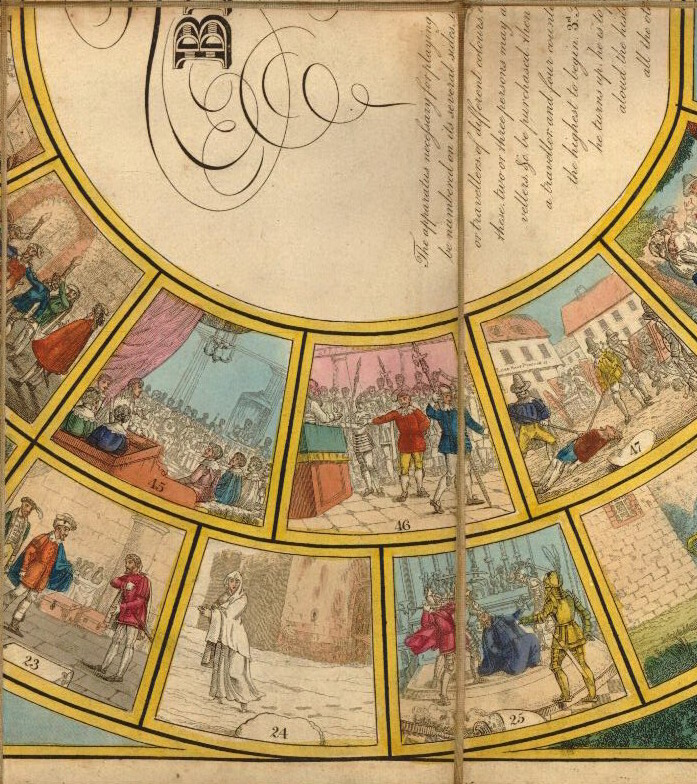 The apparatus necessary for playing
be numbered on its several sides
or travellers of different colours.
these two or three persons may
vellers &c be purchased then
a traveller and four
the highest to begin. 3rd.
he turns up he is to
aloud the
all the
45
46
47
23
24
25